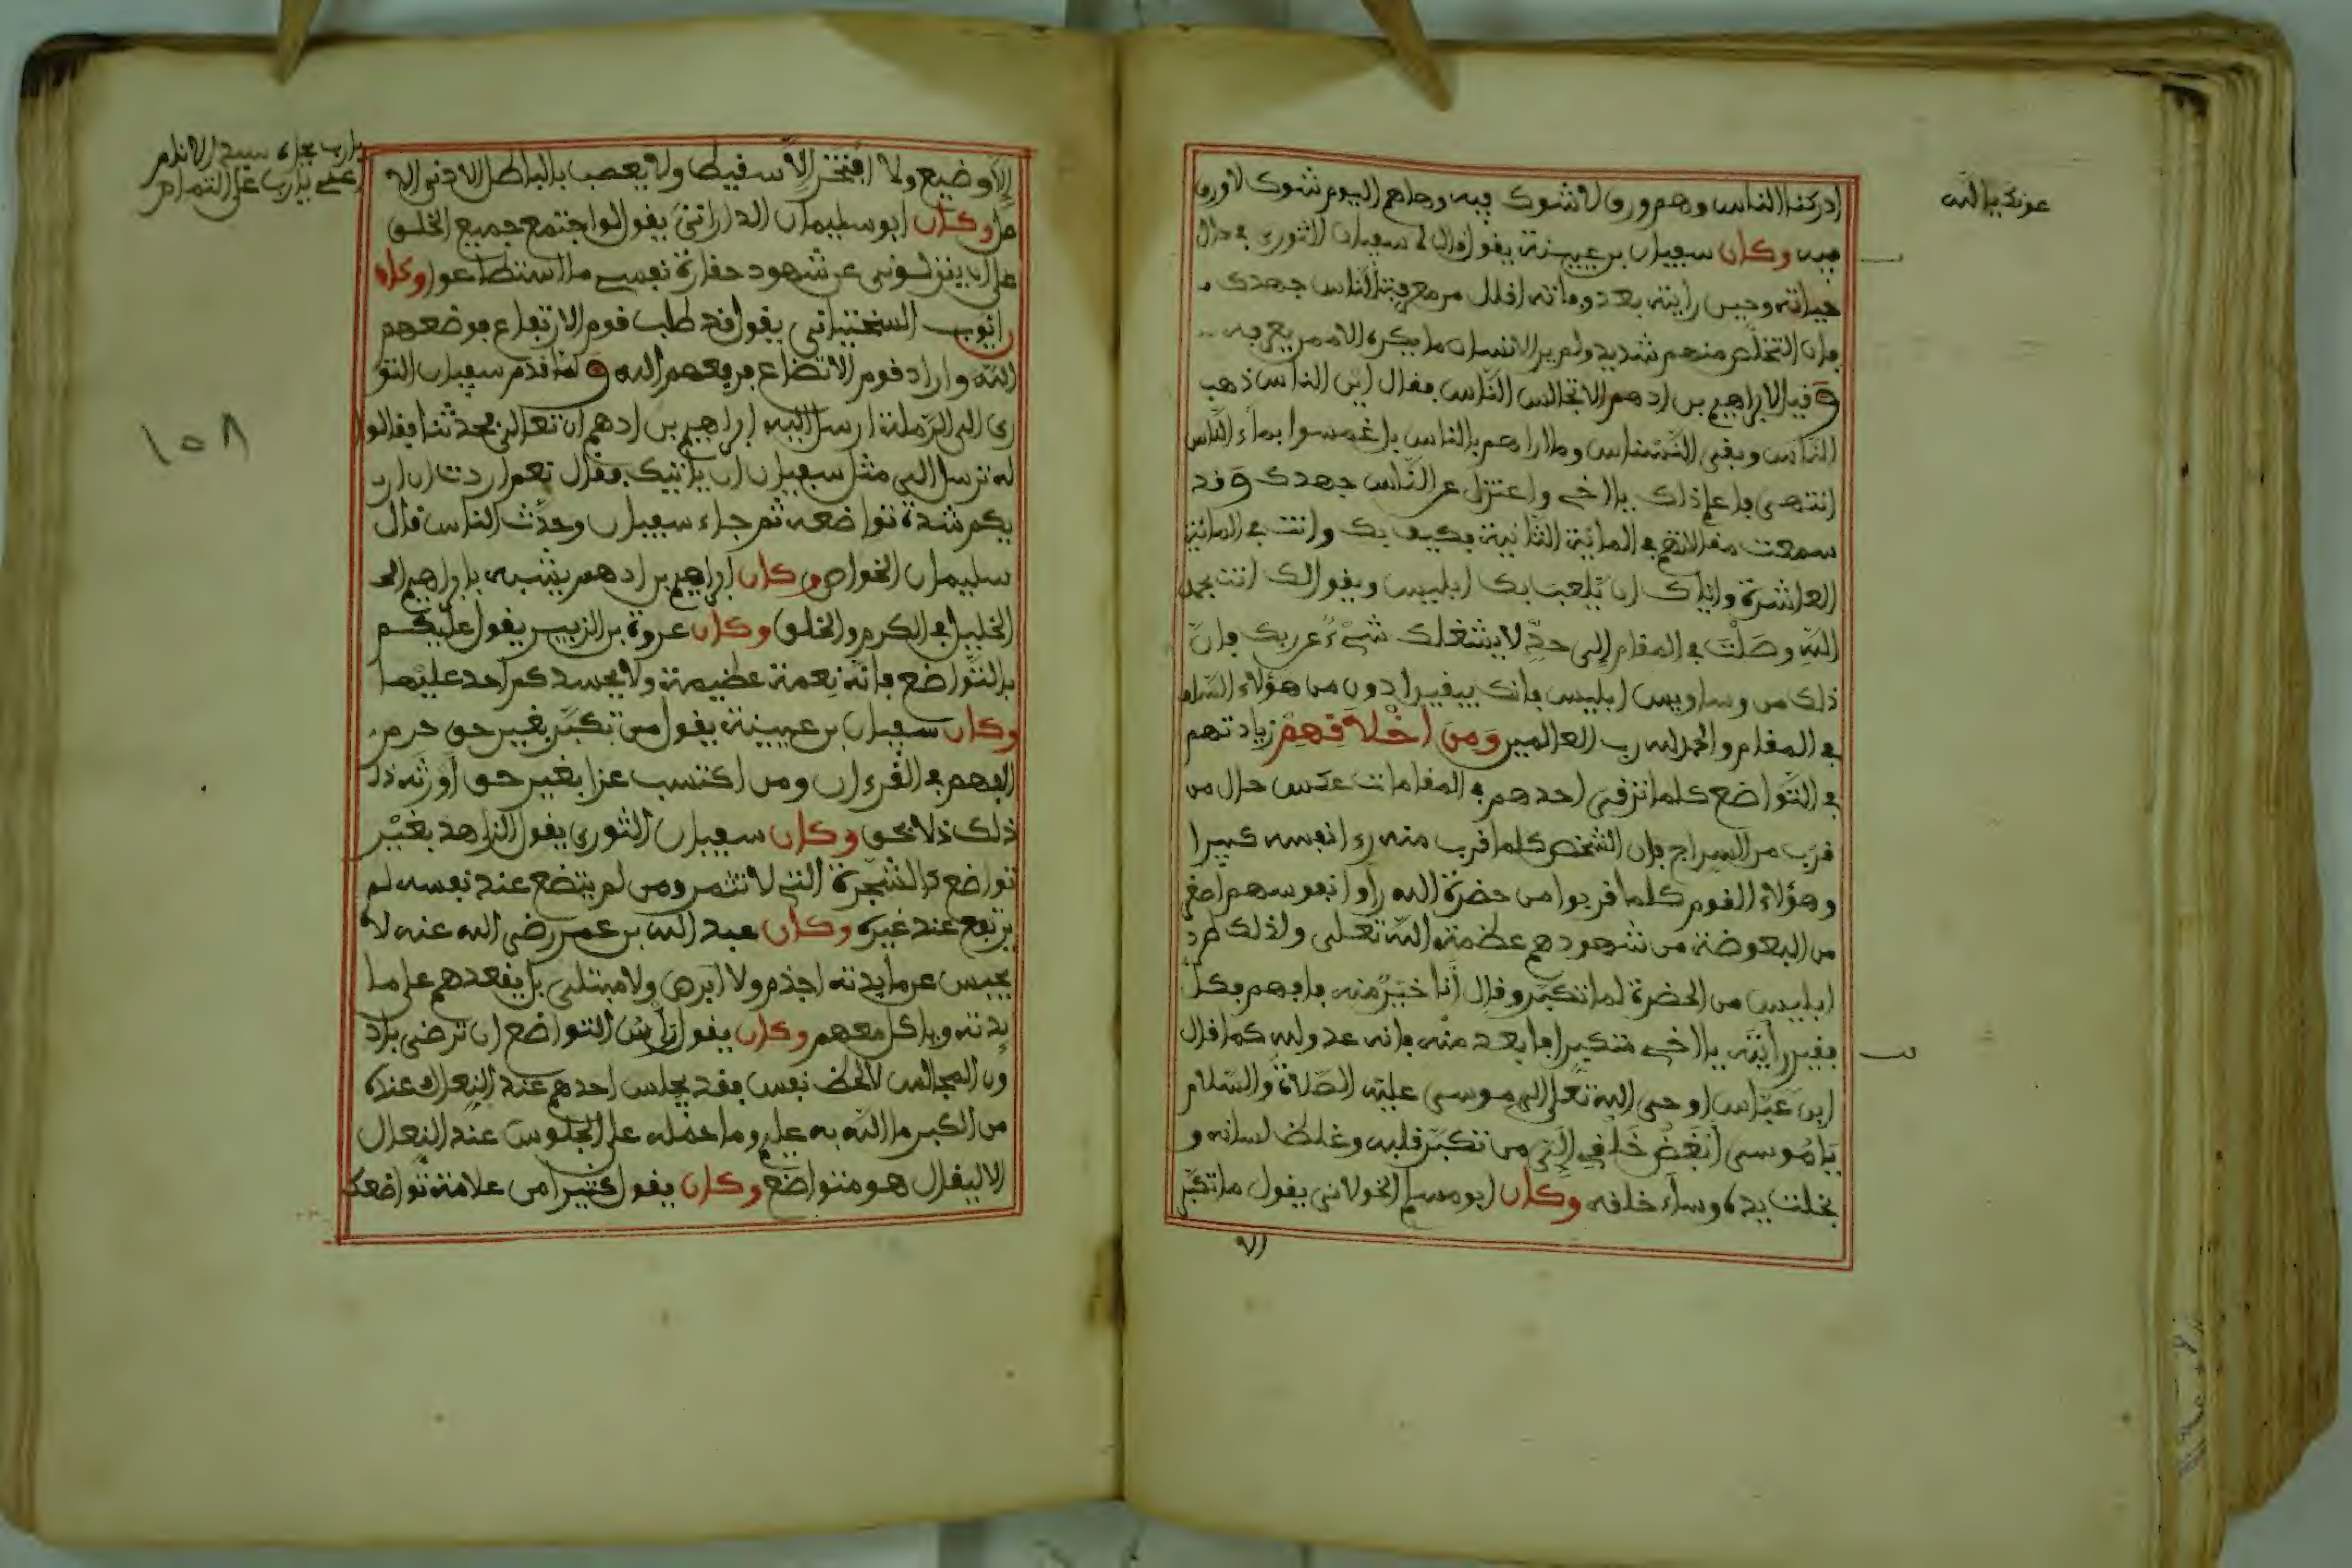 عونك يا الله
ادركنا الناس وهم ورق لا شوك فيه وهاهم اليوم شوك لا ورق
فيه وكان سفيان بن عيينة يقول قال لي سفيان الثوري في حال
حياته وحين رايته بعد وفاته اقلل من معرفة الناس جهدك
فان التخلص منهم شديد ولم ير الانسان ما يكره الا ممن يعرفه
وقيل لابراهيم بن ادهم الا تجالس الناس فقال اين الناس ذهب
الناس وبقي النسناس وما اراهم بالناس بل غمسوا بماء الناس
انتهى فاعلم ذلك يا اخي واعتزل عن الناس جهدك وقد
سمعت مقالاتهم في المائة الثانية فكيف بك وانت في المائة
العاشرة واياك ان يلعب بك ابليس ويقول لك انت بحمد
الله وصلت في المقام إلى حدّ لا يشغلك شيء عن ربك فان
ذلك من وساويس ابليس فانك بيقين ادون من هؤلاء السادة
في المقام والحمد لله رب العالمين ومن اخلاقهم زيادتهم
في التواضع كلما ترقى احدهم في المقامات عكس حال من
قرب من السراج فان الشخص كلما قرب منه رءا نفسه كبيرا
وهؤلاء القوم كلما قربوا من حضرة الله راوا نفوسهم اصغر
من البعوضة من شهودهم عظمة الله تعلى ولذلك طرد
ابليس من الحضرة لما تكبر وقال أنا خير منه فافهم فكل
فقير رأيته يا اخي متكبرا فابعد منه فانه عدو لله كما قال
ابن عباس اوحى الله تعلى الى موسى عليه الصلاة والسلام
يا موسى أبغض خلقي إلي من تكبر قلبه وغلظ لسانه و
بخلت يده وساء خلقه وكان ابو مسلم الخولاني يقول ما تكبر
الا
يا رب بجاه سيد الانام
إلا وضيع ولا افتخر إلا سقيط ولا يعصب بالباطل الا دني الا
صل وكان ابو سليمان الداراني يقول لو اجتمع جميع الخلق
على ان ينزلوني عن شهود حقارة نفسي ما استطاعوا وكان
ايوب السختياني يقول قد طلب قوم الارتفاع فوضعهم
الله واراد قوم الاتضاع فرفعهم الله ولما قدم سفيان الثو
ري الى الرملة ارسل اليه ابراهيم بن ادهم ان تعال الي فحدثنا فقالوا
له ترسل الى مثل سفيان ان ياتيك فقال نعم اردت ان ار
يكم شدة تواضعه ثم جاء سفيان وحدث الناس قال
سليمان الخواص وكان ابراهيم بن ادهم يشبه بابراهيم الخـ
الخليل في الكرم والخلق وكان عروة بن الزبير يقول عليكم
بالتواضع فانه نعمة عظيمة ولا يحسدكم احد عليها
وكان سفيان بن عيينة يقول من تكبر بغير حق حرم
الفهم في القرءان ومن اكتسب عزا بغير حق أورثه ذلـ
ذلك ذلا بحق وكان سفيان الثوري يقول الزاهد بغير
تواضع كالشجرة التي لا تثمر ومن لم يتضع عند نفسه لم
يرتفع عند غيره وكان عبد الله بن عمر رضي الله عنه لا
يحبس عن مايدته اجذم ولا ابرص ولا مبتلى بل يقعدهم على ما
يدته وياكل معهم وكان يقول رأس التواضع ان ترضى باد
ون المجالس لا لحظ نفس فقد يجلس احدهم عند النعال وعنده
من الكبر ما الله به عليم وما حمله على الجلوس عند النعال
الا ليقال هو متواضع وكان يقول كثيرا من علامة تواضعك
١٥٨